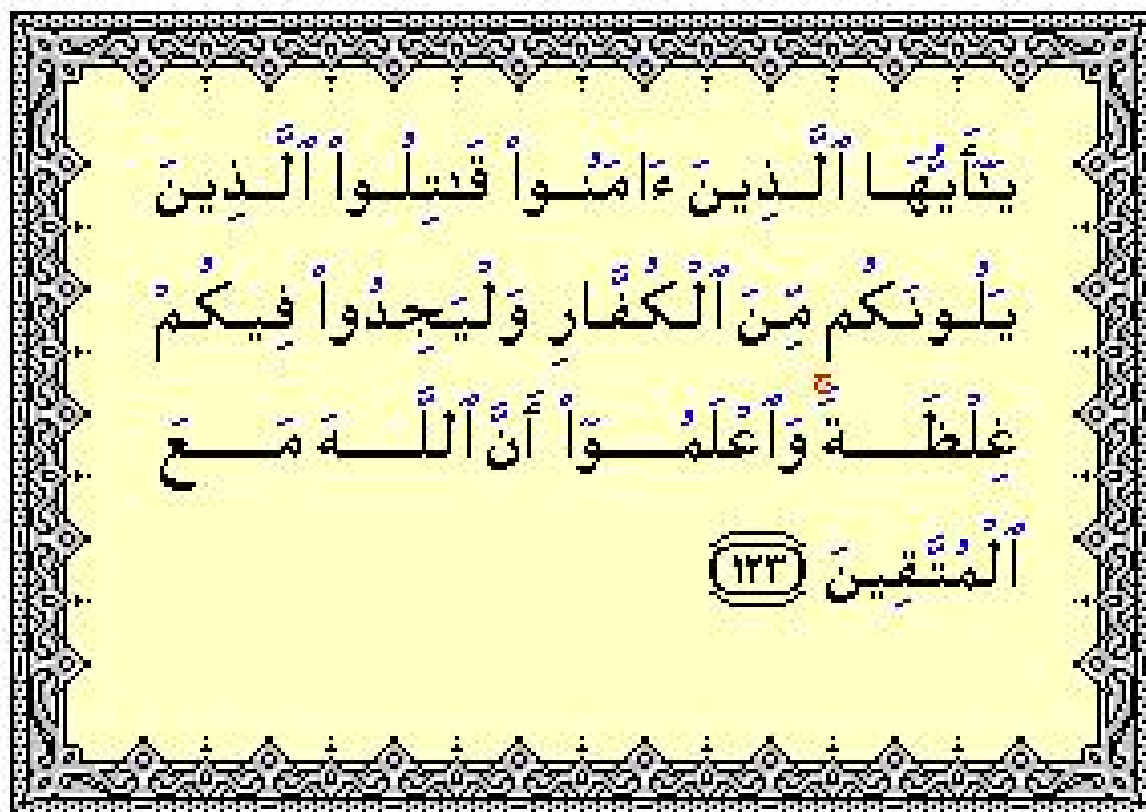 يَـٰٓأَيُّهَا ٱلَّذِينَ ءَامَنُوا۟ قَـٰتِلُوا۟ ٱلَّذِينَ
يَلُونَكُم مِّنَ ٱلْكُفَّارِ وَلْيَجِدُوا۟ فِيكُمْ
غِلْظَةً ۚ وَٱعْلَمُوٓا۟ أَنَّ ٱللَّهَ مَعَ
ٱلْمُتَّقِينَ ١٢٣